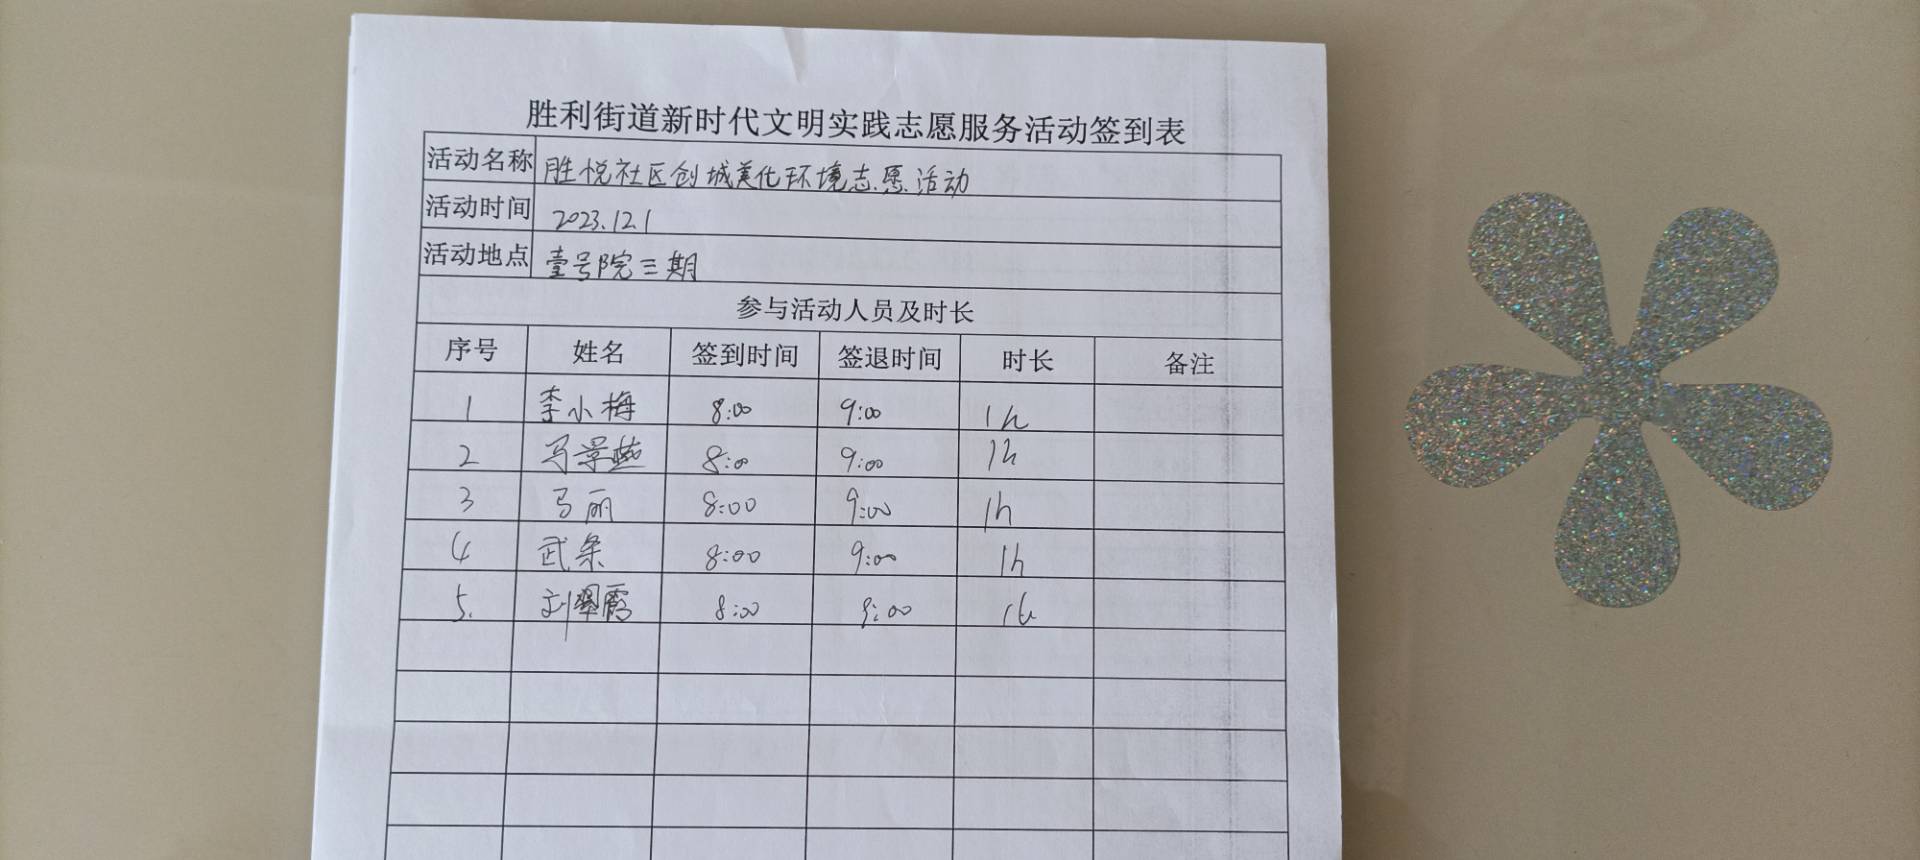 胜利街道新时代文明实践志愿服务活动签到表
活动名称 胜悦社区创城美化环境志愿活动
活动时间 2023.12.1
活动地点 壹号院三期
参与活动人员及时长
序号 姓名 签到时间 签退时间 时长 备注
1 李小梅 8:00 9:00 1h
2 马景燕 8:00 9:00 1h
3 马丽 8:00 9:00 1h
4 武条 8:00 9:00 1h
5. 刘翠霞 8:00 9:00 1h